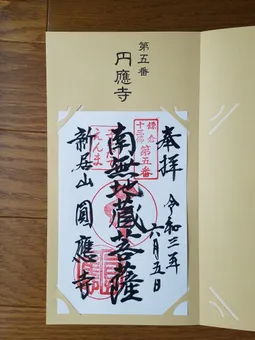 第五番
円應寺
奉拝
令和三年
六月五日
鎌倉
十三佛
第五番
南無地蔵菩薩
えんま
新居山 圓應寺